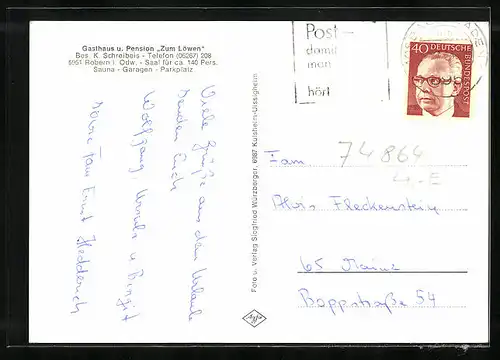 Gasthaus u. Pension „Zum Löwen"
Bes. K. Schreibeis - Telefon (06267) 208
6951 Robern i. Odw. - Saal für ca. 140 Pers.
Sauna - Garagen - Parkplatz
Post-
damit
man
hört
40 DEUTSCHE
BUNDESPOST
Viele Grüße aus dem Urlaub
senden Euch
Wolfgang, Ursula u Birgit
sowie Fam Ernst Hedderich
Foto u. Verlag Siegfried Würzberger, 6987 Külsheim-Uissigheim
74864
4,-E
Fam.
Alois Fleckenstein
65 Mainz
Boppstraße 54